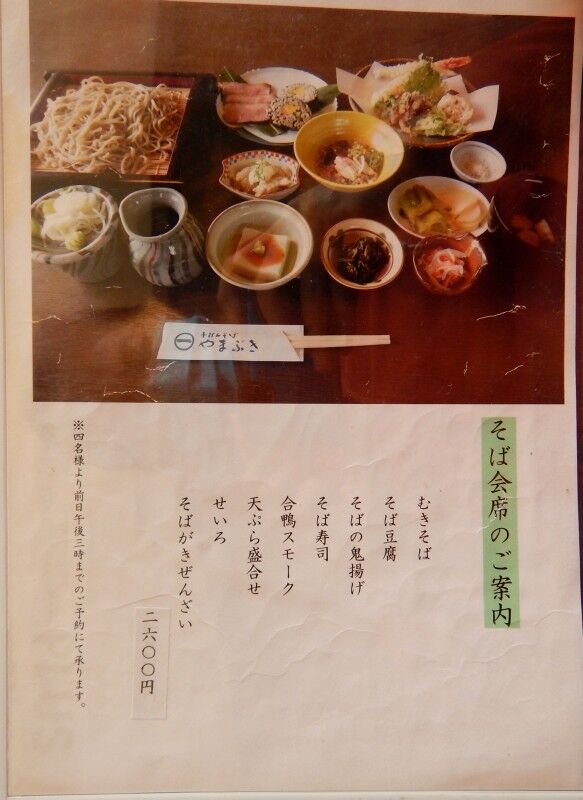 手打ちそば
やまぶき
そば会席のご案内
むきそば
そば豆腐
そばの鬼揚げ
そば寿司
合鴨スモーク
天ぷら盛合せ
せいろ
そばがきぜんざい
二六〇〇円
※四名様より前日午後三時までのご予約にて承ります。